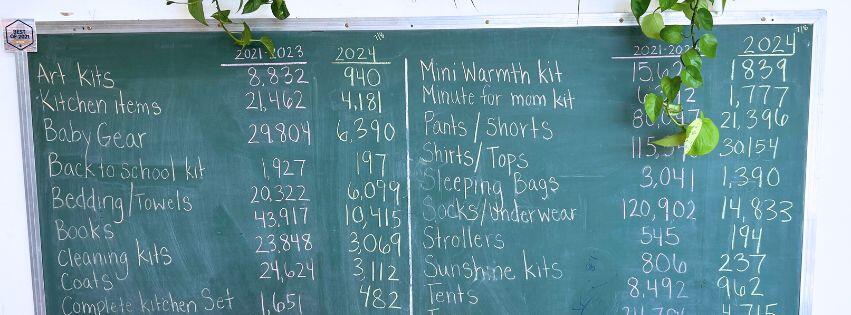 BEST OF 2021
2021-2023 2024 7/8
Art kits 8,832 940
Kitchen items 21,462 4,181
Baby Gear 29,804 6,390
Back to school kit 1,927 197
Bedding/Towels 20,322 6,099
Books 43,917 10,415
Cleaning kits 23,848 3,069
Coats 24,624 3,112
Complete kitchen Set 1,651 482
2024 7/8
Mini Warmth kit 1839
Minute for mom kit 1,777
Pants/Shorts 21,396
Shirts/Tops 30154
Sleeping Bags 3,041 1,390
Socks/Underwear 120,902 14,833
Strollers 545 194
Sunshine kits 806 237
Tents 8,492 962
4,715